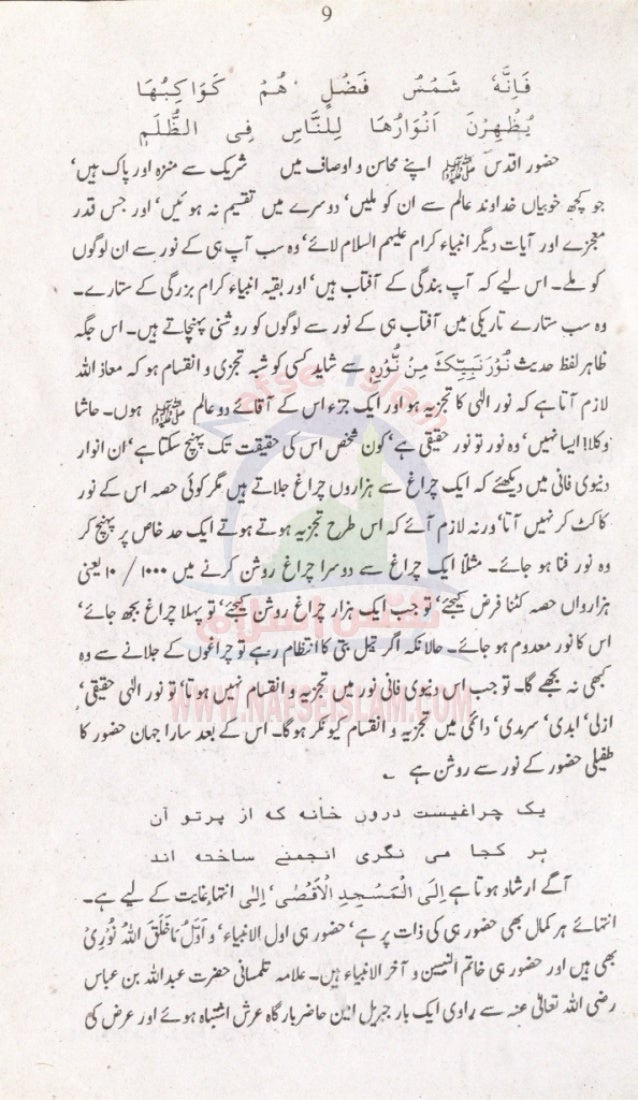 9
فَاِنَّهٗ شَمْسُ فَضْلٍ هُمْ كَوَاكِبُهَا
يُظْهِرْنَ اَنْوَارُهَا لِلنَّاسِ فِى الظُّلَمِ
حضور اقدس ﷺ اپنے محاسن و اوصاف میں شریک سے منزہ اور پاک ہیں'
جو کچھ خوبیاں خداوند عالم سے ان کو ملیں' دوسرے میں تقسیم نہ ہوئیں' اور جس قدر
معجزے اور آیات دیگر انبیاء کرام علیہم السلام لائے' وہ سب آپ ہی کے نور سے ان لوگوں
کو ملے۔ اس لیے کہ آپ بندگی کے آفتاب ہیں' اور بقیہ انبیاء کرام بزرگی کے ستارے۔
وہ سب ستارے تاریکی میں آفتاب ہی کے نور سے لوگوں کو روشنی پہنچاتے ہیں۔ اس جگہ
ظاہر لفظ حدیث نُوْرَ نَبِيِّكَ مِنْ نُّوْرِهٖ سے شاید کسی کو شبہ تجزی و انقسام ہو کہ معاذ اللہ
لازم آتا ہے کہ نور الٰہی کا تجزیہ ہو اور ایک جزء اس کے آقائے دو عالم ﷺ ہوں۔ حاشا
وکلا! ایسا نہیں' وہ نور تو نور حقیقی ہے' کون شخص اس کی حقیقت تک پہنچ سکتا ہے' ان انوار
دنیوی فانی میں دیکھئے کہ ایک چراغ سے ہزاروں چراغ جلاتے ہیں مگر کوئی حصہ اس کے نور
کا کٹ کر نہیں آتا' ورنہ لازم آئے کہ اس طرح تجزیہ ہوتے ہوتے ایک حد خاص پر پہنچ کر
وہ نور فنا ہو جائے۔ مثلاً ایک چراغ سے دوسرا چراغ روشن کرنے میں ۱۰۰۰ / ۱۰ یعنی
ہزارواں حصہ کٹنا فرض کیجئے' تو جب ایک ہزار چراغ روشن کیجئے' تو پہلا چراغ بجھ جائے'
اس کا نور معدوم ہو جائے۔ حالانکہ اگر تیل بتی کا انتظام رہے تو چراغوں کے جلانے سے وہ
کبھی نہ بجھے گا۔ تو جب اس دنیوی فانی نور میں تجزیہ و انقسام نہیں ہوتا' تو نور الٰہی حقیقی'
ازلی' ابدی' سرمدی' دائمی میں تجزیہ و انقسام کیونکر ہو گا۔ اس کے بعد سارا جہان حضور کا
طفیلی حضور کے نور سے روشن ہے ۔
یک چراغیست درون خانہ کہ از پرتو آن
ہر کجا می نگری انجمنے ساختہ اند
آگے ارشاد ہوتا ہے اِلَى الْمَسْجِدِ الْاَقْصٰى' اِلٰی انتہا غایت کے لیے ہے۔
انتہائے ہر کمال بھی حضور ہی کی ذات پر ہے' حضور ہی اول الانبیاء' و اَوَّلُ مَا خَلَقَ اللّٰهُ نُوْرِیْ
بھی ہیں اور حضور ہی خاتم النبیین و آخر الانبیاء ہیں۔ علامہ تلمسانی حضرت عبداللہ بن عباس
رضی اللہ تعالیٰ عنہ سے راوی ایک بار جبریل امین حاضر بارگاہ عرش اشتباہ ہوئے اور عرض کی
Nafse Islam
نفس اسلام
WWW.NAFSEISLAM.COM